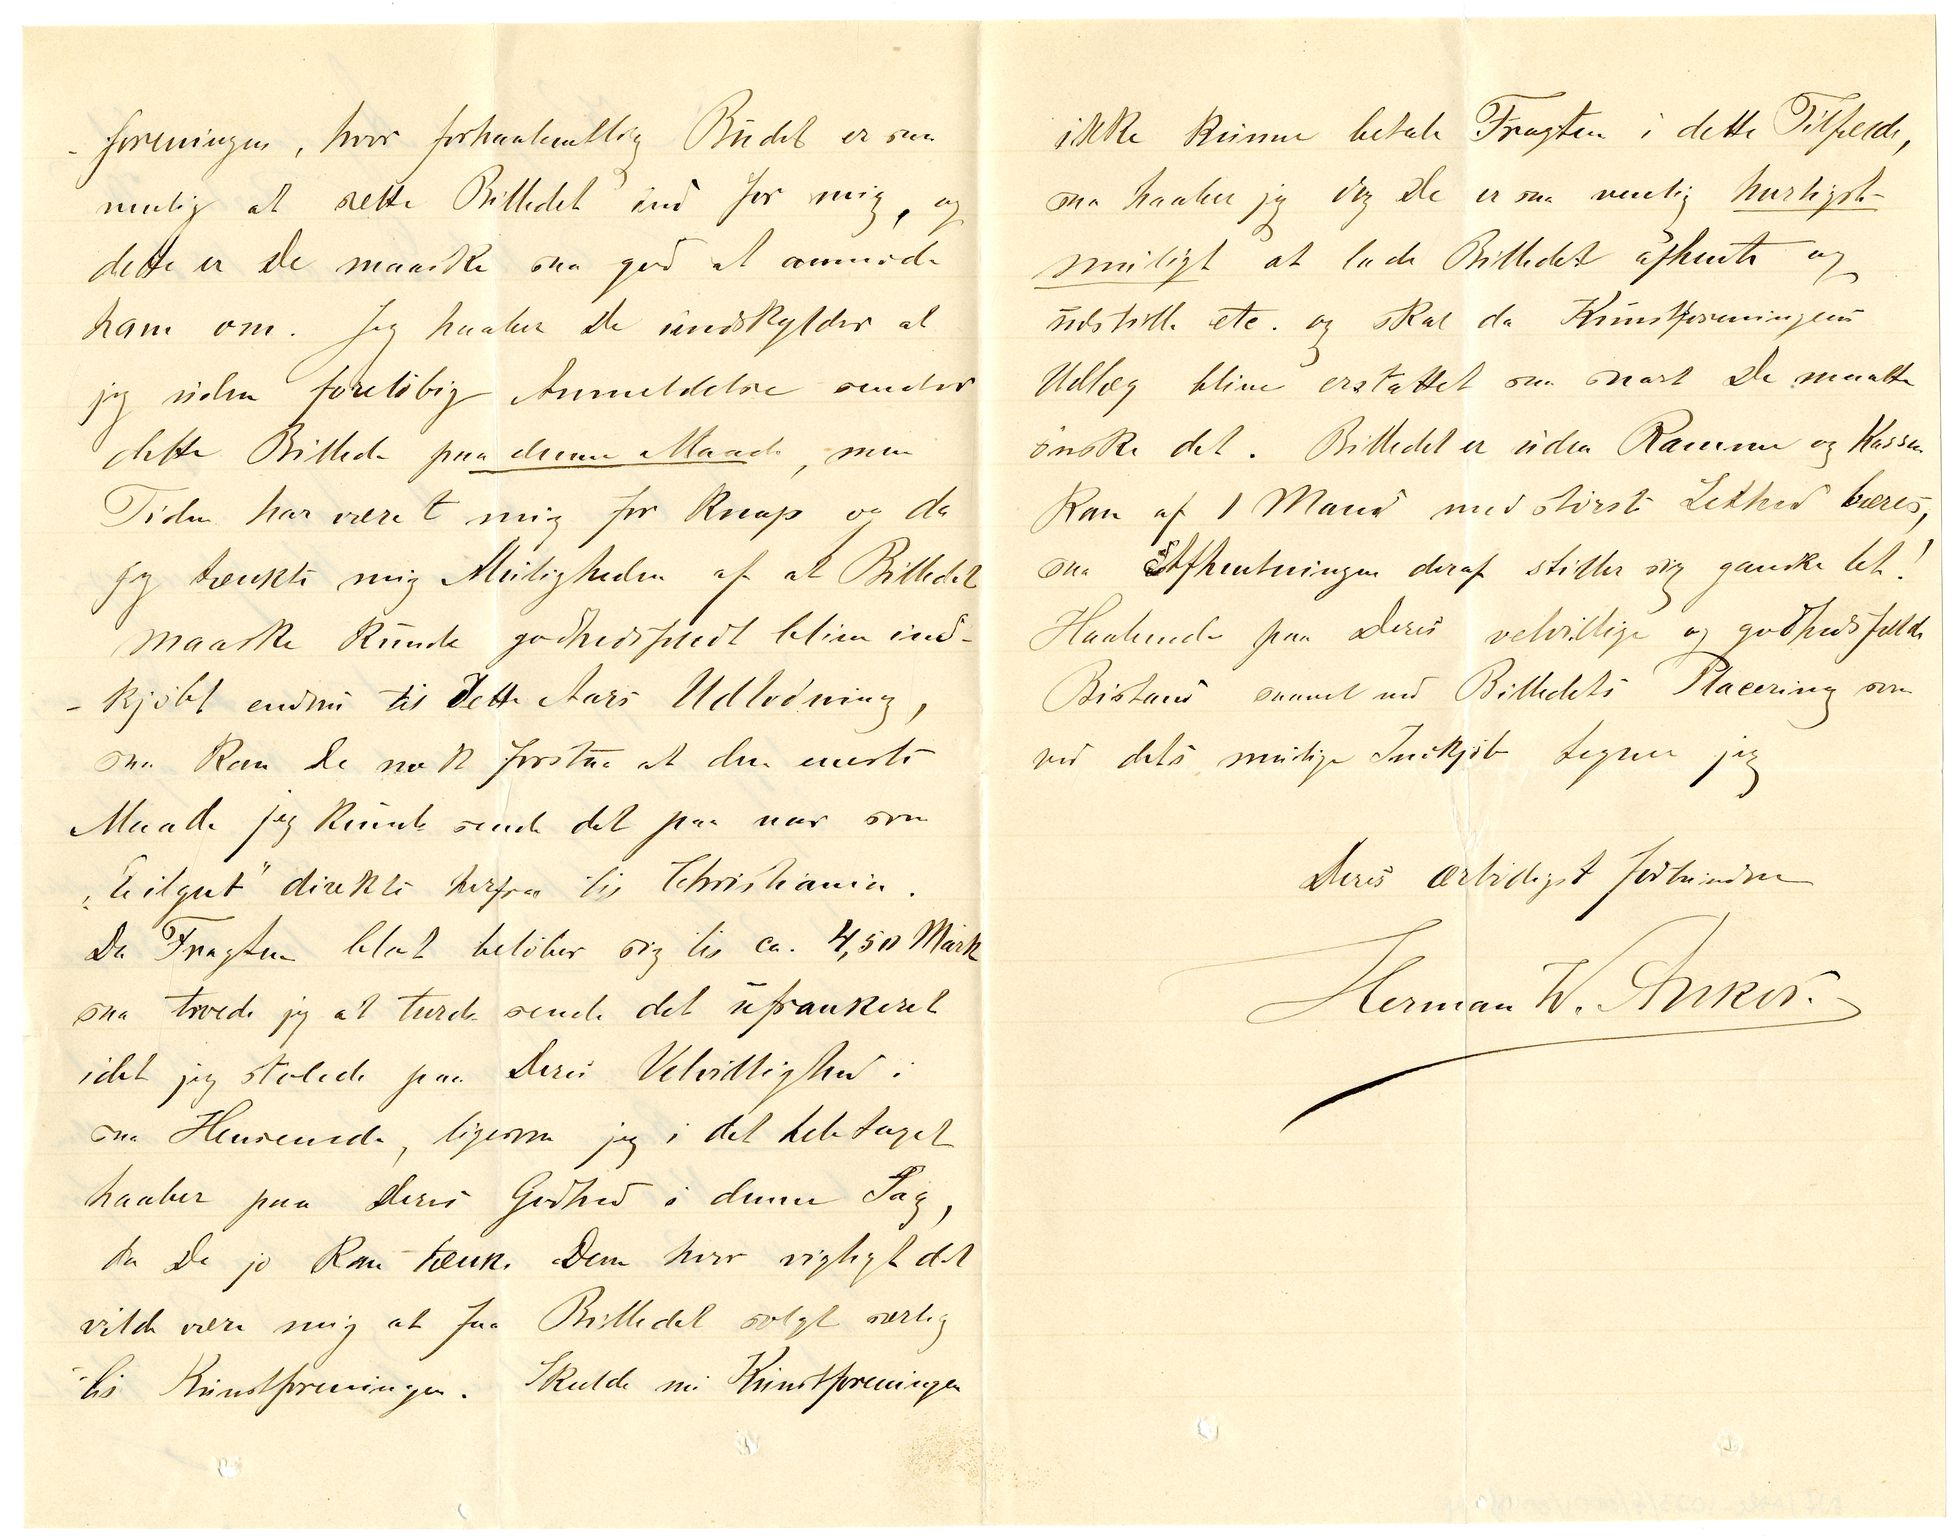 - foreningen, hvor forhaabentlig Budet er saa
venlig at sette Billedet ind for mig, og
dette er De maaske saa god at anmode
ham om. Jeg haaber De undskylder at
jeg uden foreløbig Anmeldelse sender
dette Billede paa denne Maade, men
Tiden har været mig for knap og da
jeg tænkte mig Muligheden af at Billedet
maaske kunde godhedsfuldt blive ind-
- kjøbt endnu til dette Aars Udlodning,
saa kan De nok forstaa at den eneste
Maade jeg kunde sende det paa var som
„Eilgut" direkte herfra til Christiania.
Da Fragten blot beløber sig til ca. 4,50 Mark
saa troede jeg at turde sende det ufrankeret
idet jeg stolede paa Deres Velvillighed i
saa Henseende, ligesom jeg i det hele taget
haaber paa Deres Godhed i denne Sag,
da De jo kan tænke Dem hvor vigtigt det
vilde være mig at faa Billedet solgt særlig
til Kunstforeningen. Skulde nu Kunstforeningen
ikke kunne betale Fragten i dette Tilfælde,
saa haaber jeg dog De er saa venlig hurtigst-
muligt at lade Billedet afhente og
udstille etc. og skal da Kunstforeningens
Udlæg blive erstattet saa snart De maatte
ønske det. Billedet er uden Ramme og Kassen
kan af 1 Mand med største Lethed bæres,
saa Afhentningen deraf stiller sig ganske let!
Haabende paa Deres velvillige og godhedsfulde
Bistand saavel ved Billedets Placering som
ved dets mulige Indkjøb tegner jeg
Deres ærbødigst forbundne
Herman W. Anker.